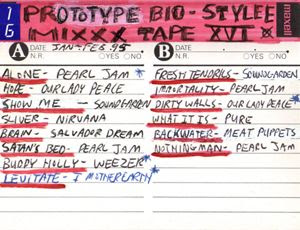 16
PROTOTYPE BIO-STYLEE
MIXXX TAPE XVI
maxell
A DATE JAN-FEB 95
N.R. YES NO
B DATE
N.R. YES NO
ALONE - PEARL JAM *
HOPE - OUR LADY PEACE
SHOW ME - SOUNDGARDEN
SLIVER - NIRVANA
BRAIN - SALVADOR DREAM
SATAN'S BED - PEARL JAM
BUDDY HOLLY - WEEZER *
LEVITATE - I MOTHER EARTH
FRESH TENDRILS - SOUNDGARDEN
IMMORTALITY - PEARL JAM
DIRTY WALLS - OUR LADY PEACE *
WHAT IT IS - PURE
BACKWATER - MEAT PUPPETS
NOTHINGMAN - PEARL JAM